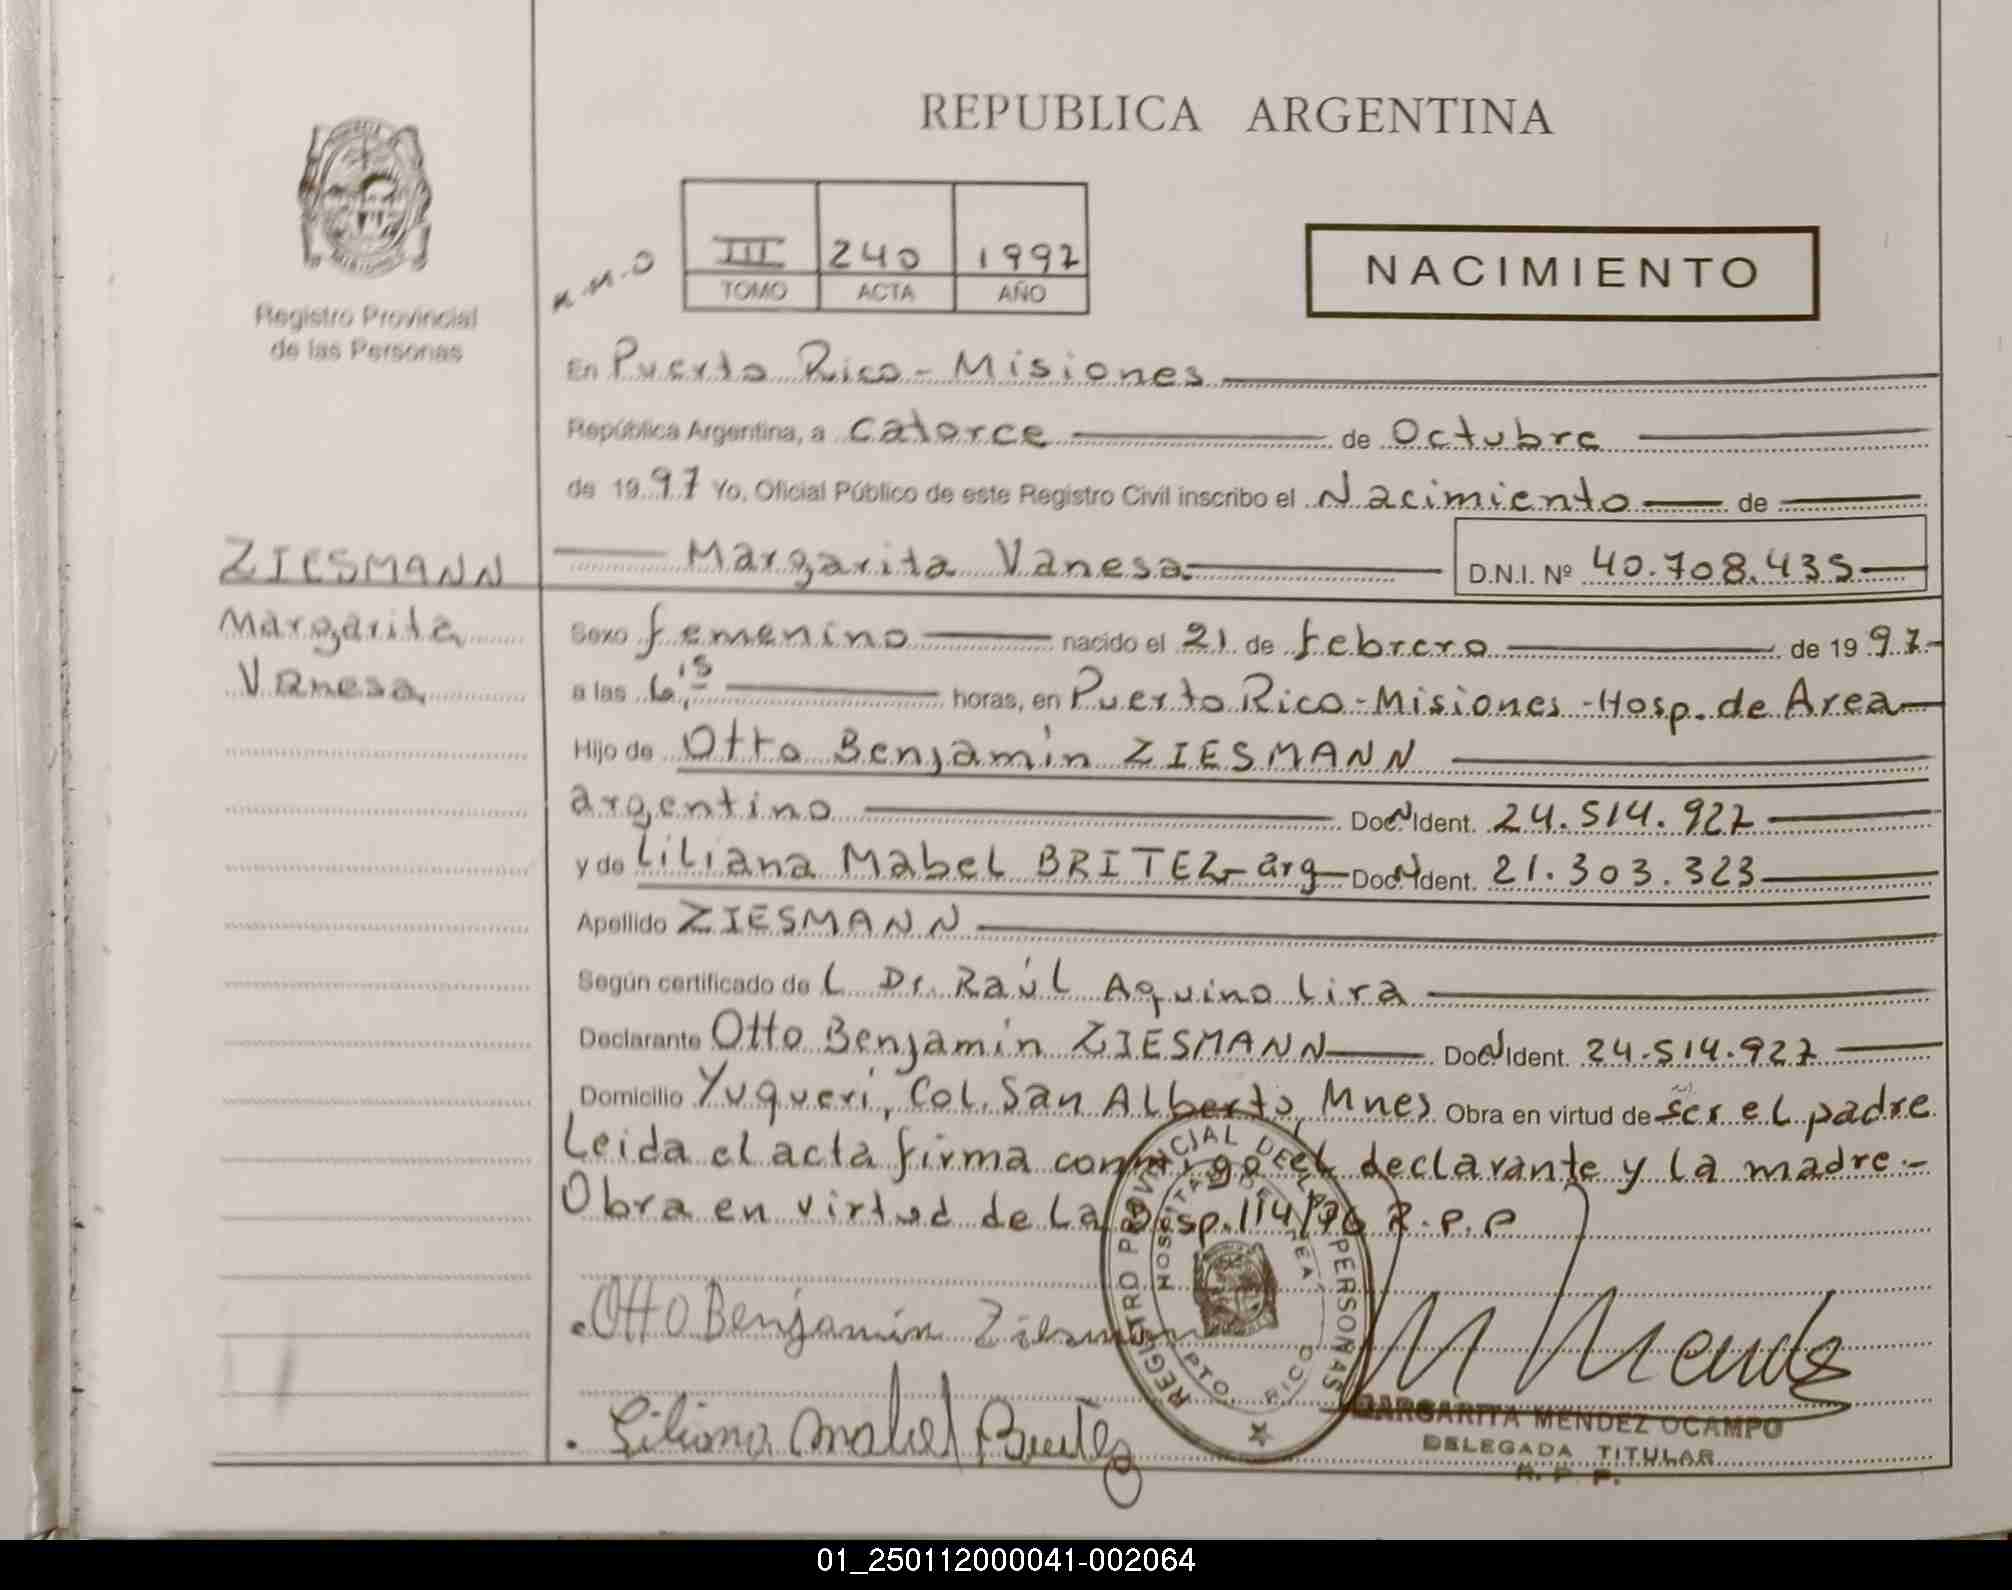 REPUBLICA ARGENTINA
Registro Provincial
de las Personas
III 240 1997
TOMO ACTA AÑO
NACIMIENTO
En Puerto Rico - Misiones
República Argentina, a catorce de Octubre
de 1997 Yo, Oficial Público de este Registro Civil inscribo el Nacimiento de
ZIESMANN
Margarita
Vanesa
Margarita Vanesa. D.N.I. Nº 40.708.435
Sexo femenino nacido el 21 de febrero de 1997
a las 6,15 horas, en Puerto Rico-Misiones-Hosp. de Area
Hijo de Otto Benjamin ZIESMANN
argentino Doc. N Ident. 24.514.927
y de Liliana Mabel BRITEZ - arg Doc. N Ident. 21.303.323
Apellido ZIESMANN
Según certificado de L Dr. Raúl Aquino Lira
Declarante Otto Benjamin ZIESMANN Doc. N Ident. 24.514.927
Domicilio Yuquerí, Col. San Alberto, Mnes Obra en virtud de ser el padre
Leida el acta firma conmigo el declarante y la madre.-
Obra en virtud de la Disp. 114/96 R.P.P
REGISTRO PROVINCIAL DE LAS PERSONAS
HOSPITAL DE AREA
PTO. RICO
Otto Benjamin Ziesmann
M Mendez
Liliana Mabel Britez
MARGARITA MENDEZ OCAMPO
DELEGADA TITULAR
R. P. P.
01_250112000041-002064